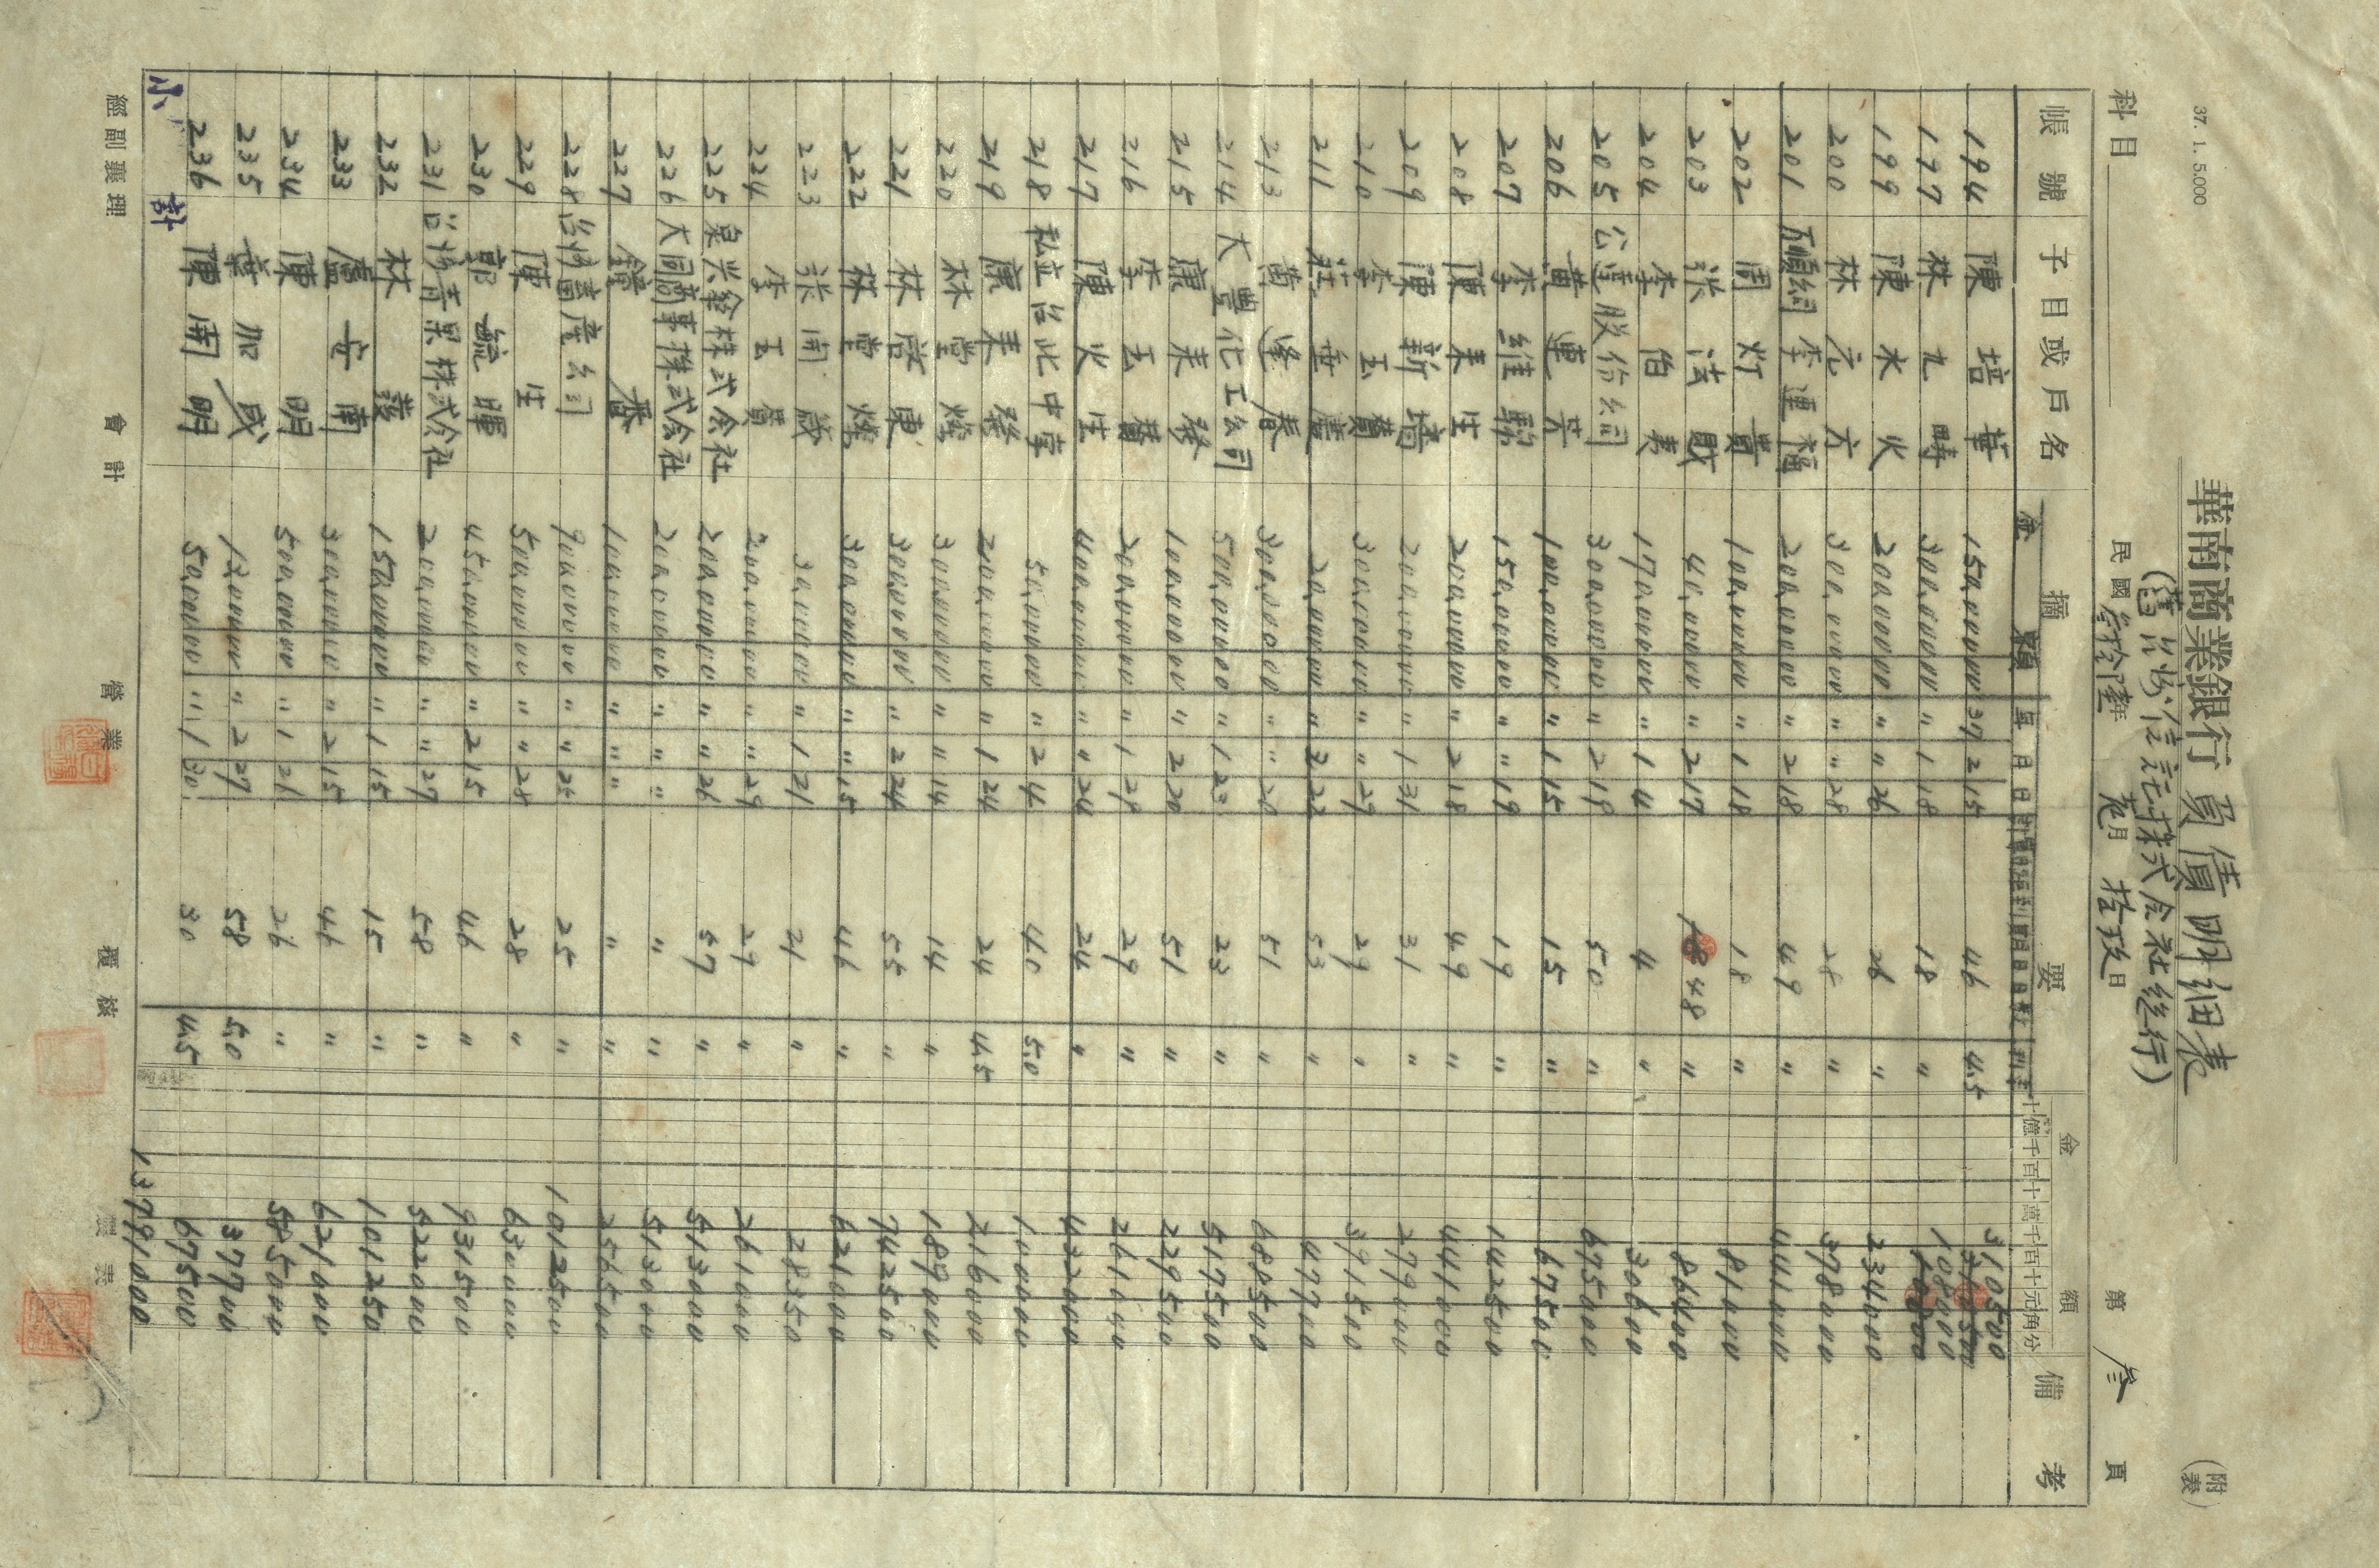 37. 1. 5.000
華南商業銀行負債明細表
(舊台灣信託株式会社総行)
(附表)
科目
民國 叁拾陸年 叁月 拾玖日
第 叁 頁
帳號 子目或戶名 摘要 金額 備考
金額 年 月 日 利率
十億千百十萬千百十元角分
194 陳培華 150,000.00 37 2 15 46 4.5 3,105.00
197 林九疇 300,000.00 〃 1 18 18 〃 1080.00
199 陳水火 200,000.00 〃 〃 26 26 〃 2340.00
200 林元方 300,000.00 〃 〃 28 28 〃 3780.00
201 李連福 200,000.00 〃 2 18 49 〃 4410.00
202 周灯貴 100,000.00 〃 1 18 18 〃 810.00
203 張法財 40,000.00 〃 2 17 48 〃 864.00
204 李伯 170,000.00 〃 1 4 4 〃 306.00
205 公達股份公司 300,000.00 〃 2 19 50 〃 6750.00
206 黃連 100,000.00 〃 1 15 15 〃 675.00
207 李維 150,000.00 〃 〃 19 19 〃 1425.00
208 陳未生 200,000.00 〃 2 18 49 〃 4410.00
209 陳新培 200,000.00 〃 1 31 31 〃 2790.00
210 李玉贊 300,000.00 〃 〃 29 29 〃 3915.00
211 莊垂 20,000.00 〃 2 22 53 〃 477.00
213 黃逢春 300,000.00 〃 〃 20 51 〃 6885.00
214 大豐化工公司 500,000.00 〃 1 23 23 〃 5175.00
215 康未發 100,000.00 〃 2 20 51 〃 2295.00
216 李玉贊 200,000.00 〃 1 29 29 〃 2610.00
217 陳火生 400,000.00 〃 〃 24 24 〃 4320.00
218 私立台北中学 50,000.00 〃 2 4 40 5.0 1000.00
219 康未發 200,000.00 〃 1 24 24 4.5 2160.00
220 林堂燦 300,000.00 〃 〃 14 14 〃 1890.00
221 林啓東 300,000.00 〃 2 24 55 〃 7425.00
222 林堂燦 300,000.00 〃 〃 15 46 〃 6210.00
223 張開歲 30,000.00 〃 1 21 21 〃 283.50
224 李玉贊 200,000.00 〃 〃 29 29 〃 2610.00
225 泉兴傘株式会社 200,000.00 〃 〃 26 57 〃 5130.00
226 大同商事株式会社 200,000.00 〃 〃 〃 〃 〃 5130.00
227 鐘番 100,000.00 〃 〃 〃 〃 〃 2565.00
228 台灣畜產公司 900,000.00 〃 〃 25 25 〃 10125.00
229 陳生 500,000.00 〃 〃 28 28 〃 6300.00
230 郭毓暉 450,000.00 〃 2 15 46 〃 9315.00
231 台灣青果株式会社 200,000.00 〃 〃 27 58 〃 5220.00
232 林發 150,000.00 〃 1 15 15 〃 1012.50
233 盧安南 300,000.00 〃 2 15 46 〃 6210.00
234 陳明 500,000.00 〃 1 26 26 〃 5850.00
235 葉加成 13,000.00 〃 2 27 58 5.0 377.00
236 陳開明 50,000.00 〃 1 30 30 4.5 675.00
小計 137,910.00
經副襄理 會計 營業 覆核 製表